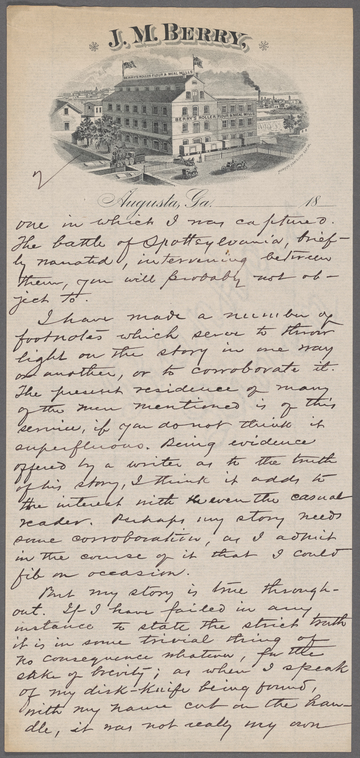 J. M. BERRY,
BERRY'S ROLLER FLOUR & MEAL MILLS
BERRY'S ROLLER FLOUR & MEAL MILLS
Augusta, Ga. 18
one in which I was captured.
The battle of Spottsylvania, brief-
ly narrated, intervening between
them, you will probably not ob-
ject to.
I have made a number of
footnotes which serve to throw
light on the story in one way
or another, or to corroborate it.
The present residence of many
of the men mentioned is of this
service, if you do not think it
superfluous. Being evidence
offered by a writer as to the truth
of his story, I think it adds to
the interest with even the casual
reader. Perhaps, my story needs
some corroboration, as I admit
in the course of it that I could
fib on occasion.
But my story is true through-
out. If I have failed in any
instance to state the strict truth
it is in some trivial thing of
no consequence whatever, for the
sake of brevity; as when I speak
of my dirk-knife being found,
with my name cut on the han-
dle, it was not really my own